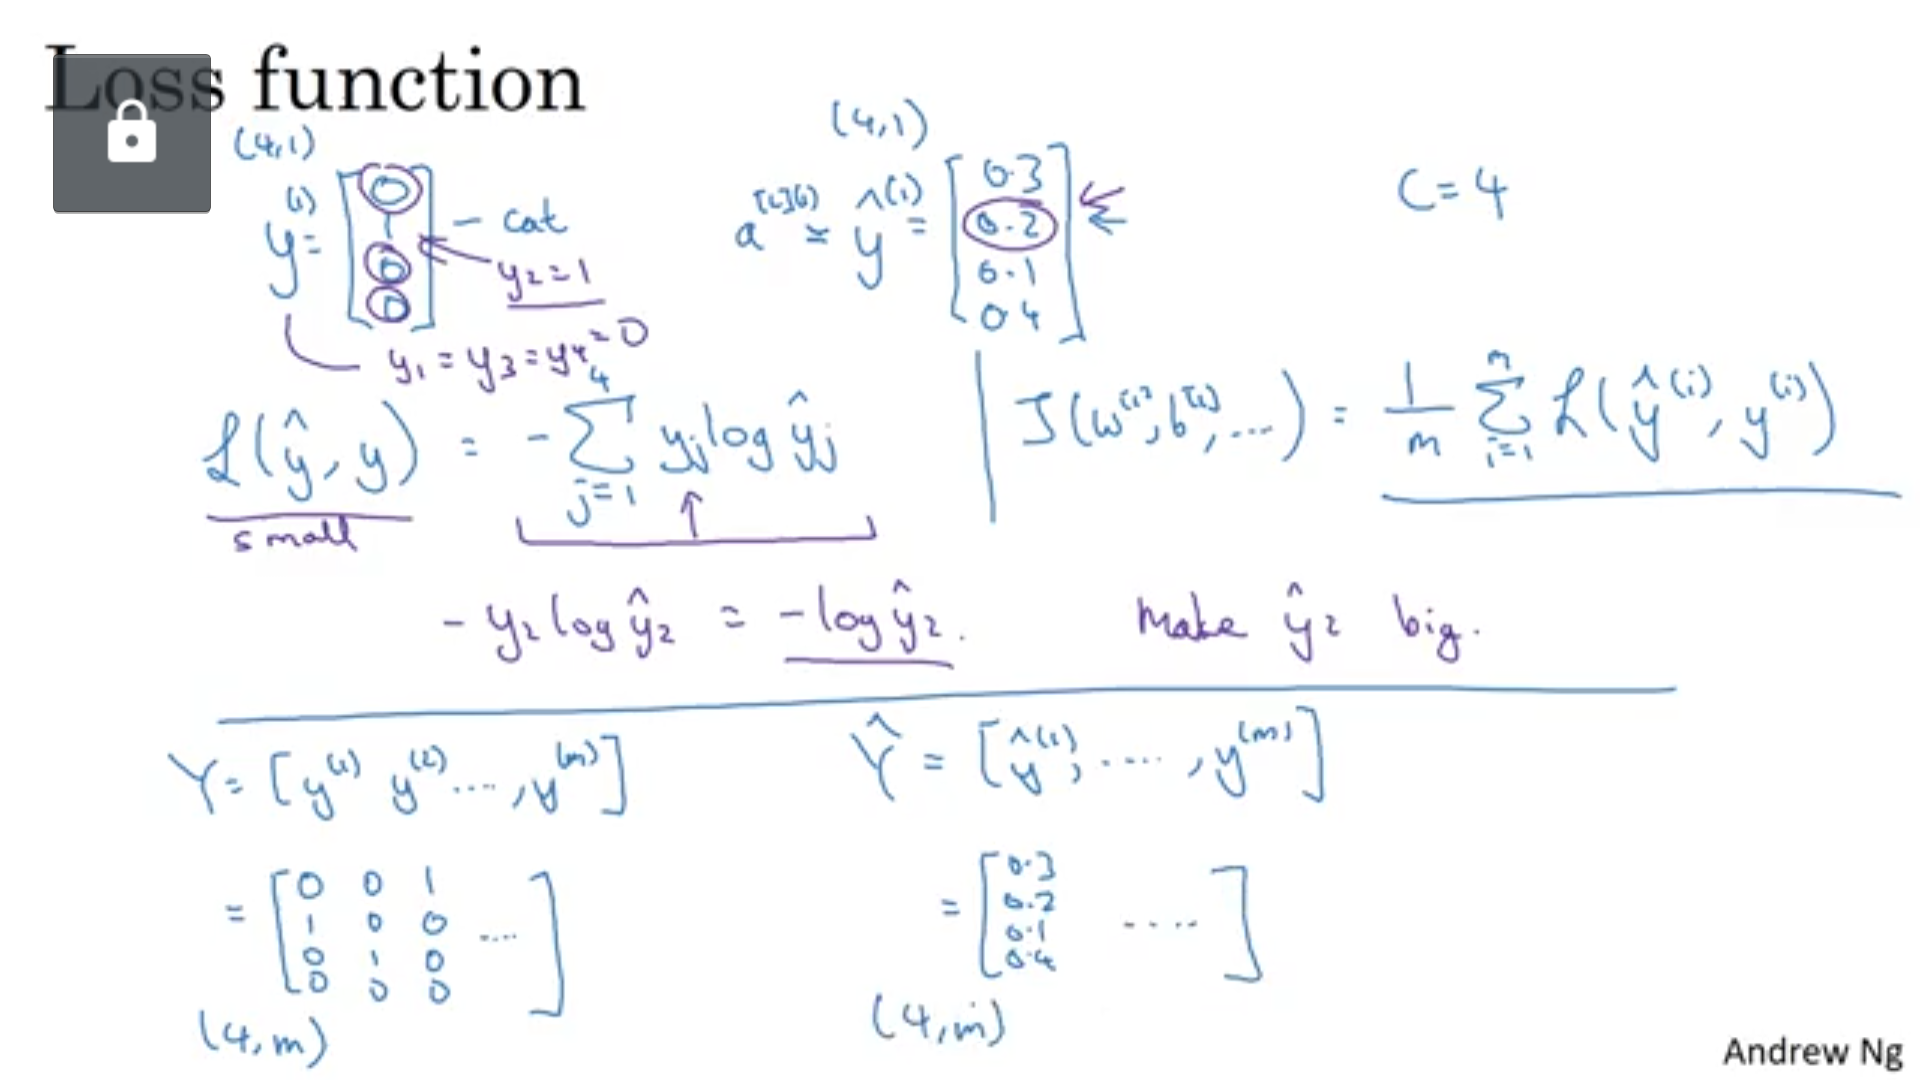 Loss function
(4,1)
y⁽¹⁾ = [0 1 0 0] - cat
y₂ = 1
y₁ = y₃ = y₄ = 0
(4,1)
a^{[L](1)} = ŷ⁽¹⁾ = [0.3 0.2 0.1 0.4]
C = 4
ℒ(ŷ, y) = - ∑_{j=1}^{4} y_j log ŷ_j
small
J(w^{[1]}, b^{[1]}, ...) = 1/m ∑_{i=1}^{m} ℒ(ŷ^{(i)}, y^{(i)})
- y₂ log ŷ₂ = - log ŷ₂. Make ŷ₂ big.
Y = [y⁽¹⁾ y⁽²⁾ ...., y⁽ᵐ⁾]
= [
0 0 1
1 0 0 ....
0 1 0
0 0 0
]
(4, m)
Ŷ = [ŷ⁽¹⁾, ...., y⁽ᵐ⁾]
= [
0.3
0.2 .....
0.1
0.4
]
(4, m)
Andrew Ng